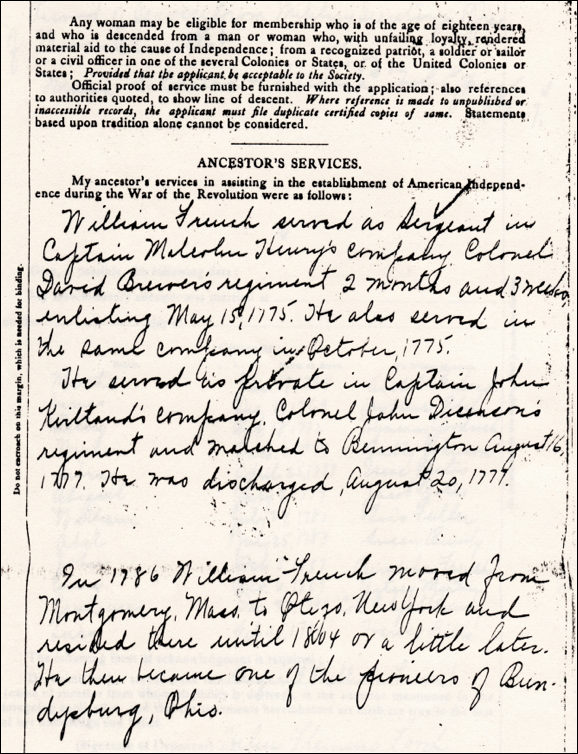 Any woman may be eligible for membership who is of the age of eighteen years,
and who is descended from a man or woman who, with unfailing loyalty, rendered
material aid to the cause of Independence; from a recognized patriot, a soldier or sailor
or a civil officer in one of the several Colonies or States, or of the United Colonies or
States; Provided that the applicant be acceptable to the Society.
Official proof of service must be furnished with the application; also references
to authorities quoted, to show line of descent. Where reference is made to unpublished or
inaccessible records, the applicant must file duplicate certified copies of same. Statements
based upon tradition alone cannot be considered.
ANCESTOR'S SERVICES.
My ancestor's services in assisting in the establishment of American Independ-
ence during the War of the Revolution were as follows:
William French served as Sergeant in
Captain Malcolm Henry's company, Colonel
David Brewer's regiment 2 months and 3 weeks,
enlisting May 15, 1775. He also served in
the same company in October, 1775.
He served as private in Captain John
Kirtland's company, Colonel John Dickinson's
regiment and marched to Bennington August 16,
1777. He was discharged, August 20, 1777.
In 1786 William French moved from
Montgomery, Mass. to Otego, New York and
resided there until 1804 or a little later.
He then became one of the pioneers of Bun-
dysburg, Ohio.
Do not encroach on this margin, which is needed for binding.